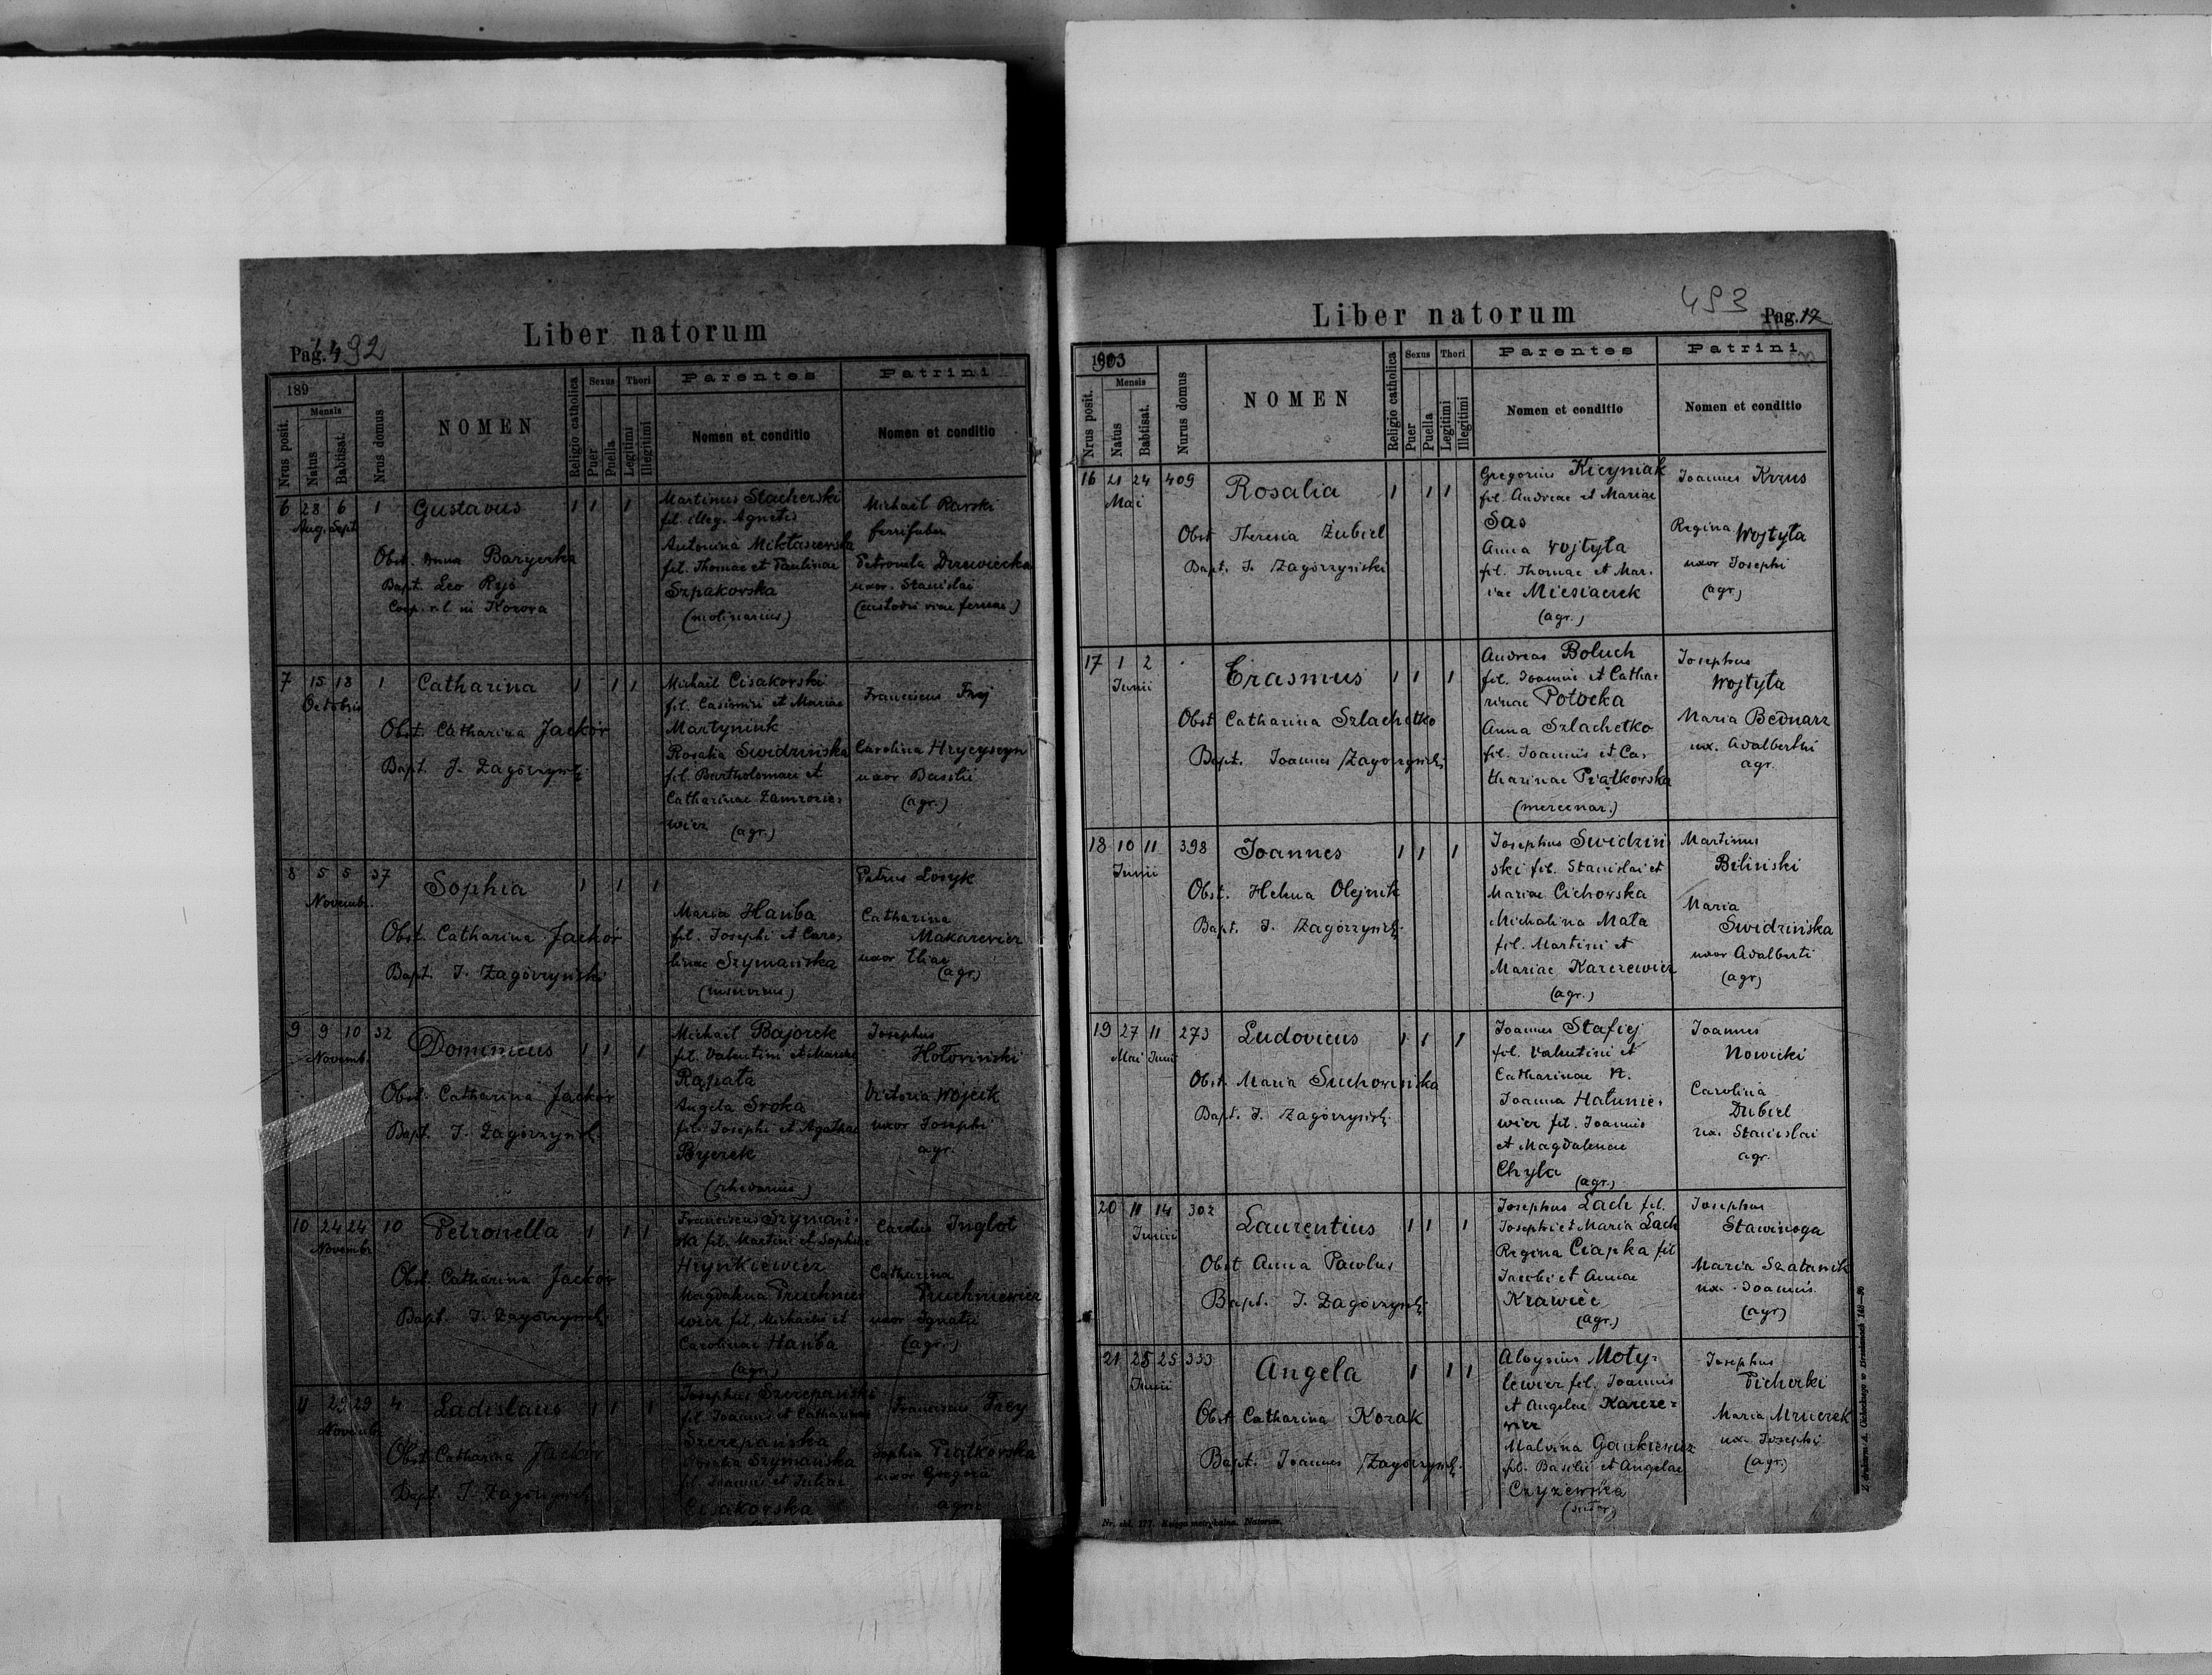 Liber natorum
Pag. 492
189
Nrus posit.
Mensis
Natus
Babtisat.
Nrus domus
NOMEN
Religio catholica
Sexus
Puer
Puella
Thori
Legitimi
Illegitimi
Parentes
Nomen et conditio
Patrini
Nomen et conditio
6 28 6 1 Gustavus 1 1 1
Aug. Sept.
Obst. Anna Baryerka
Bapt. Leo Ryś
Coop. r. l. in Kozova
Martinus Stacherski
fil. illeg. Agnetis
Antonina Miktaszevska
fil. Thomae et Paulinae
Szpakorska
(molinarius)
Michaël Ravski
ferrifaber
Petronela Drzeviecka
uxor. Stanislai
(custodis viae ferreae)
7 15 18 1 Catharina 1 1 1
Octobris
Obst. Catharina Jackór
Bapt. J. Zagórzyńsk
Michaël Cisakorski
fil. Casimiri et Mariae
Martyniuk
Rosalia Swidzińska
fil. Bartholomaei et
Catharinae Zamrozie-
wicz (agr.)
Franciscus Frej
Carolina Hrycyszyn
uxor Basilii
(agr.)
8 5 5 37 Sophia 1 1 1
Novembr.
Obst. Catharina Jackór
Bapt. J. Zagórzyński
Maria Hanba
fil. Josephi et Caro-
linae Szymańska
Petrus Łosyk
Catharina
Makarewicz
uxor Eliae
(agr.)
9 9 10 32 Dominicus 1 1 1
Novemb.
Obst. Catharina Jackór
Bapt. J. Zagórzyńsk
Michaël Bajorek
fil. Valentini et Mariae
Rąpała
Angela Sroka
fil. Josephi et Agathae
Bycrek
(rhedarius)
Josephus
Hołoviński
Victoria Wójcik
uxor Josephi
agr.
10 24 24 10 Petronella 1 1 1
Novembr.
Obst. Catharina Jackór
Bapt. J. Zagórzyńsk
Franciscus Szymań-
ski fil. Martini et Sophiae
Hrynkiewicz
Magdalena Pruchnie-
wicz fil. Michaelis et
Carolinae Hanba
(agr.)
Carolus Inglot
Catharina
Pruchniewicz
uxor Ignatii
(agr.)
11 29 29 4 Ladislaus 1 1 1
Novembr.
Obst. Catharina Jackór
Bapt. J. Zagórzyńsk
Josephus Szczepański
fil. Joannis et Catharinae
Szczepańska
Rosalia Szymańska
fil. Joannis et Juliae
Cisakorska
Franciscus Frey
Sophia Piątkowska
uxor Gregorii
Liber natorum
493
Pag. 17
1903
Nrus posit.
Mensis
Natus
Babtisat.
Nurus domus
NOMEN
Religio catholica
Sexus
Puer
Puella
Thori
Legitimi
Illegitimi
Parentes
Nomen et conditio
Patrini
Nomen et conditio
16 21 24 409 Rosalia 1 1 1
Mai
Obst Theresia Żubiel
Bapt. J. Zagórzyński
Gregorius Kicyniak
fil. Andreae et Mariae
Sas
Anna Wojtyła
fil. Thomae et Mar-
iae Miesiaczek
(agr.)
Joannes Krzus
Regina Wojtyła
uxor Josephi
(agr)
17 1 2 Erasmus 1 1 1
Junii
Obst Catharina Szlachetko
Bapt. Joannes Zagórzyńsk
Andreas Boluch
fil. Joannis et Catha-
rinae Potocka
Anna Szlachetko
fil. Joannis et Ca-
tharinae Piątkowska
(mercenar.)
Josephus
Wojtyła
Maria Bednarz
ux. Adalberthi
agr.
18 10 11 398 Joannes 1 1 1
Junii
Obst. Helena Olejnik
Bapt. J. Zagórzyńsk
Josephus Swidziń
ski fil. Stanislai et
Mariae Cichowska
Michalina Mała
fil. Martini et
Mariae Karczewicz
(agr.)
Martinus
Biliński
Maria
Swidzińska
uxor Adalberti
(agr)
19 27 11 273 Ludovicus 1 1 1
Mai Junii
Obst. Maria Suchowińska
Bapt. J. Zagórzyńsk
Joannes Stafiej
fil. Valentini et
Catharinae N.
Joanna Hałunie-
wicz fil. Joannis
et Magdalenae
Chyła (agr.)
Joannes
Nowicki
Carolina
Dubiel
ux. Stanislai
agr.
20 11 14 302 Laurentius 1 1 1
Junii
Obst Anna Pawlus
Bapt. J. Zagórzyńsk
Josephus Lach fil.
Josephi et Maria Lach
Regina Ciapka fil
Jacobi et Annae
Krawiec
(agr.)
Josephus
Stawinoga
Maria Szałanik
ux. Joannis
(agr)
21 25 25 333 Angela 1 1 1
Junii
Obst Catharina Kozak
Bapt. Joannes Zagórzyńsk
Aloysius Moty-
lewicz fil. Joannis
et Angelae Karcze-
wicz
Malvina Gankiewicz
fil. Basilii et Angelae
Czyżewska
(sutor)
Josephus
Picherki
Maria Mruczek
ux. Josephi
(agr.)
Nr. skl. 177. Księga metrykalna. Natorum.